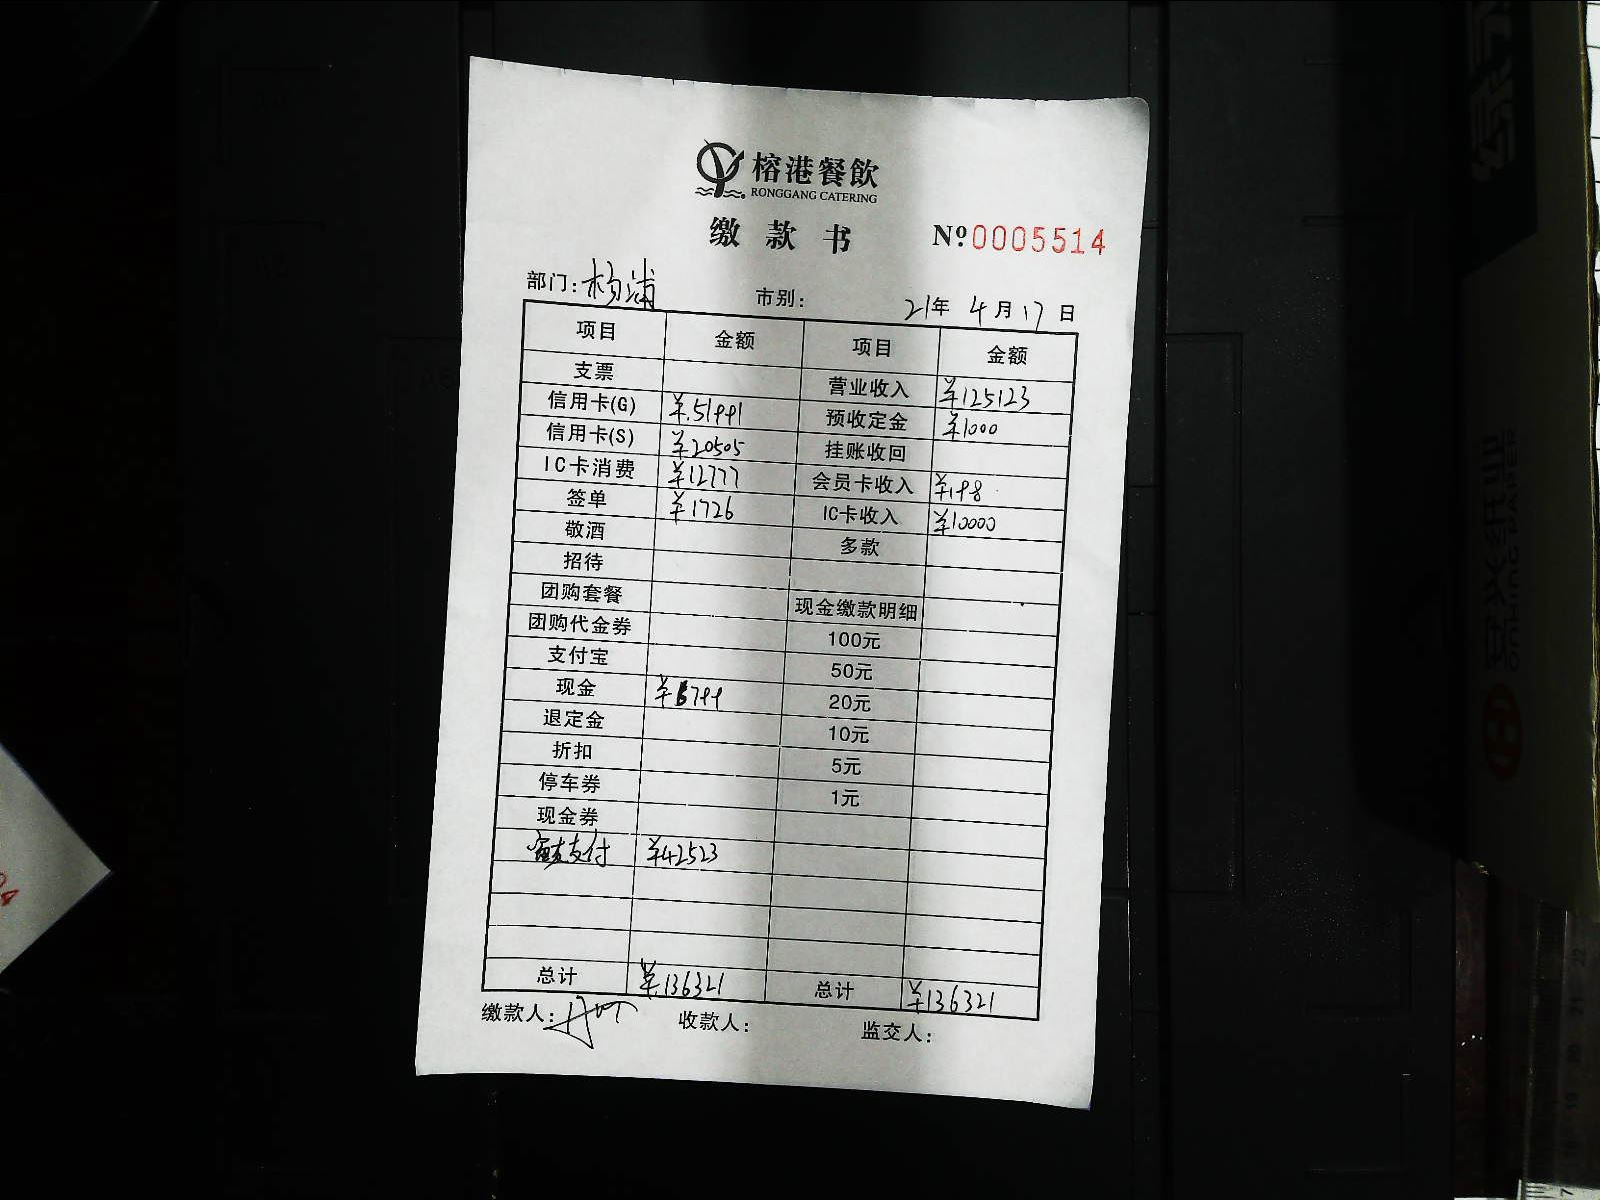 榕港餐飲
RONGGANG CATERING
缴款书 Nº 0005514
部门: 杨浦 市别: 21年 4月 17日
项目 金额 项目 金额
支票 营业收入 ¥125123
信用卡(G) ¥51991 预收定金 ¥1000
信用卡(S) ¥20505 挂账收回
IC卡消费 ¥12777 会员卡收入 ¥198
签单 ¥1726 IC卡收入 ¥10000
敬酒 多款
招待
团购套餐 现金缴款明细
团购代金券 100元
支付宝 50元
现金 ¥6799 20元
退定金 10元
折扣 5元
停车券 1元
现金券
富友支付 ¥42523
总计 ¥136321 总计 ¥136321
缴款人: 收款人: 监交人:
安兴纸业
ONHING PAPER